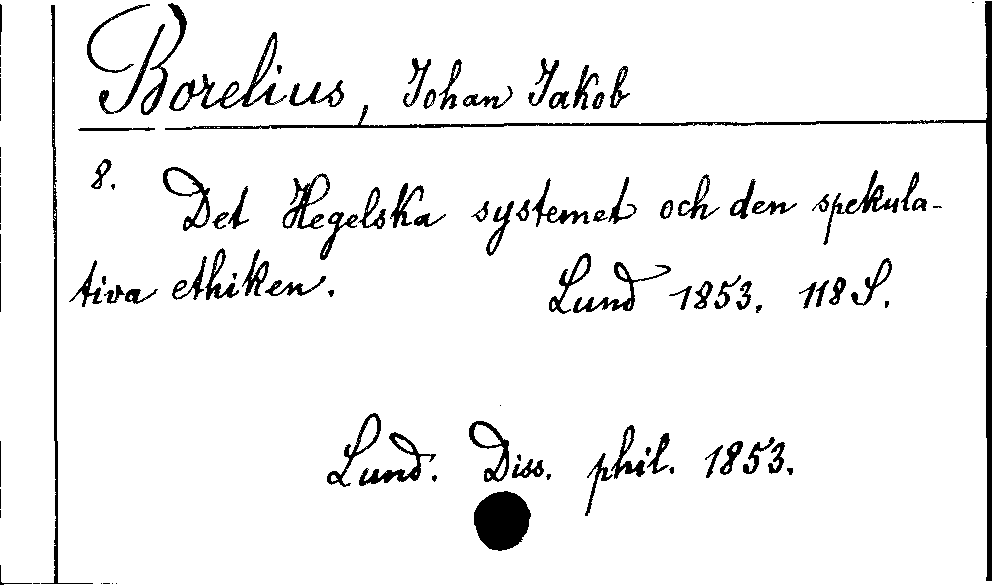 Borelius, Johan Jakob
8.
Det Hegelska systemet och den spekula-
tiva ethiken. Lund 1853. 118 S.
Lund. Diss. phil. 1853.